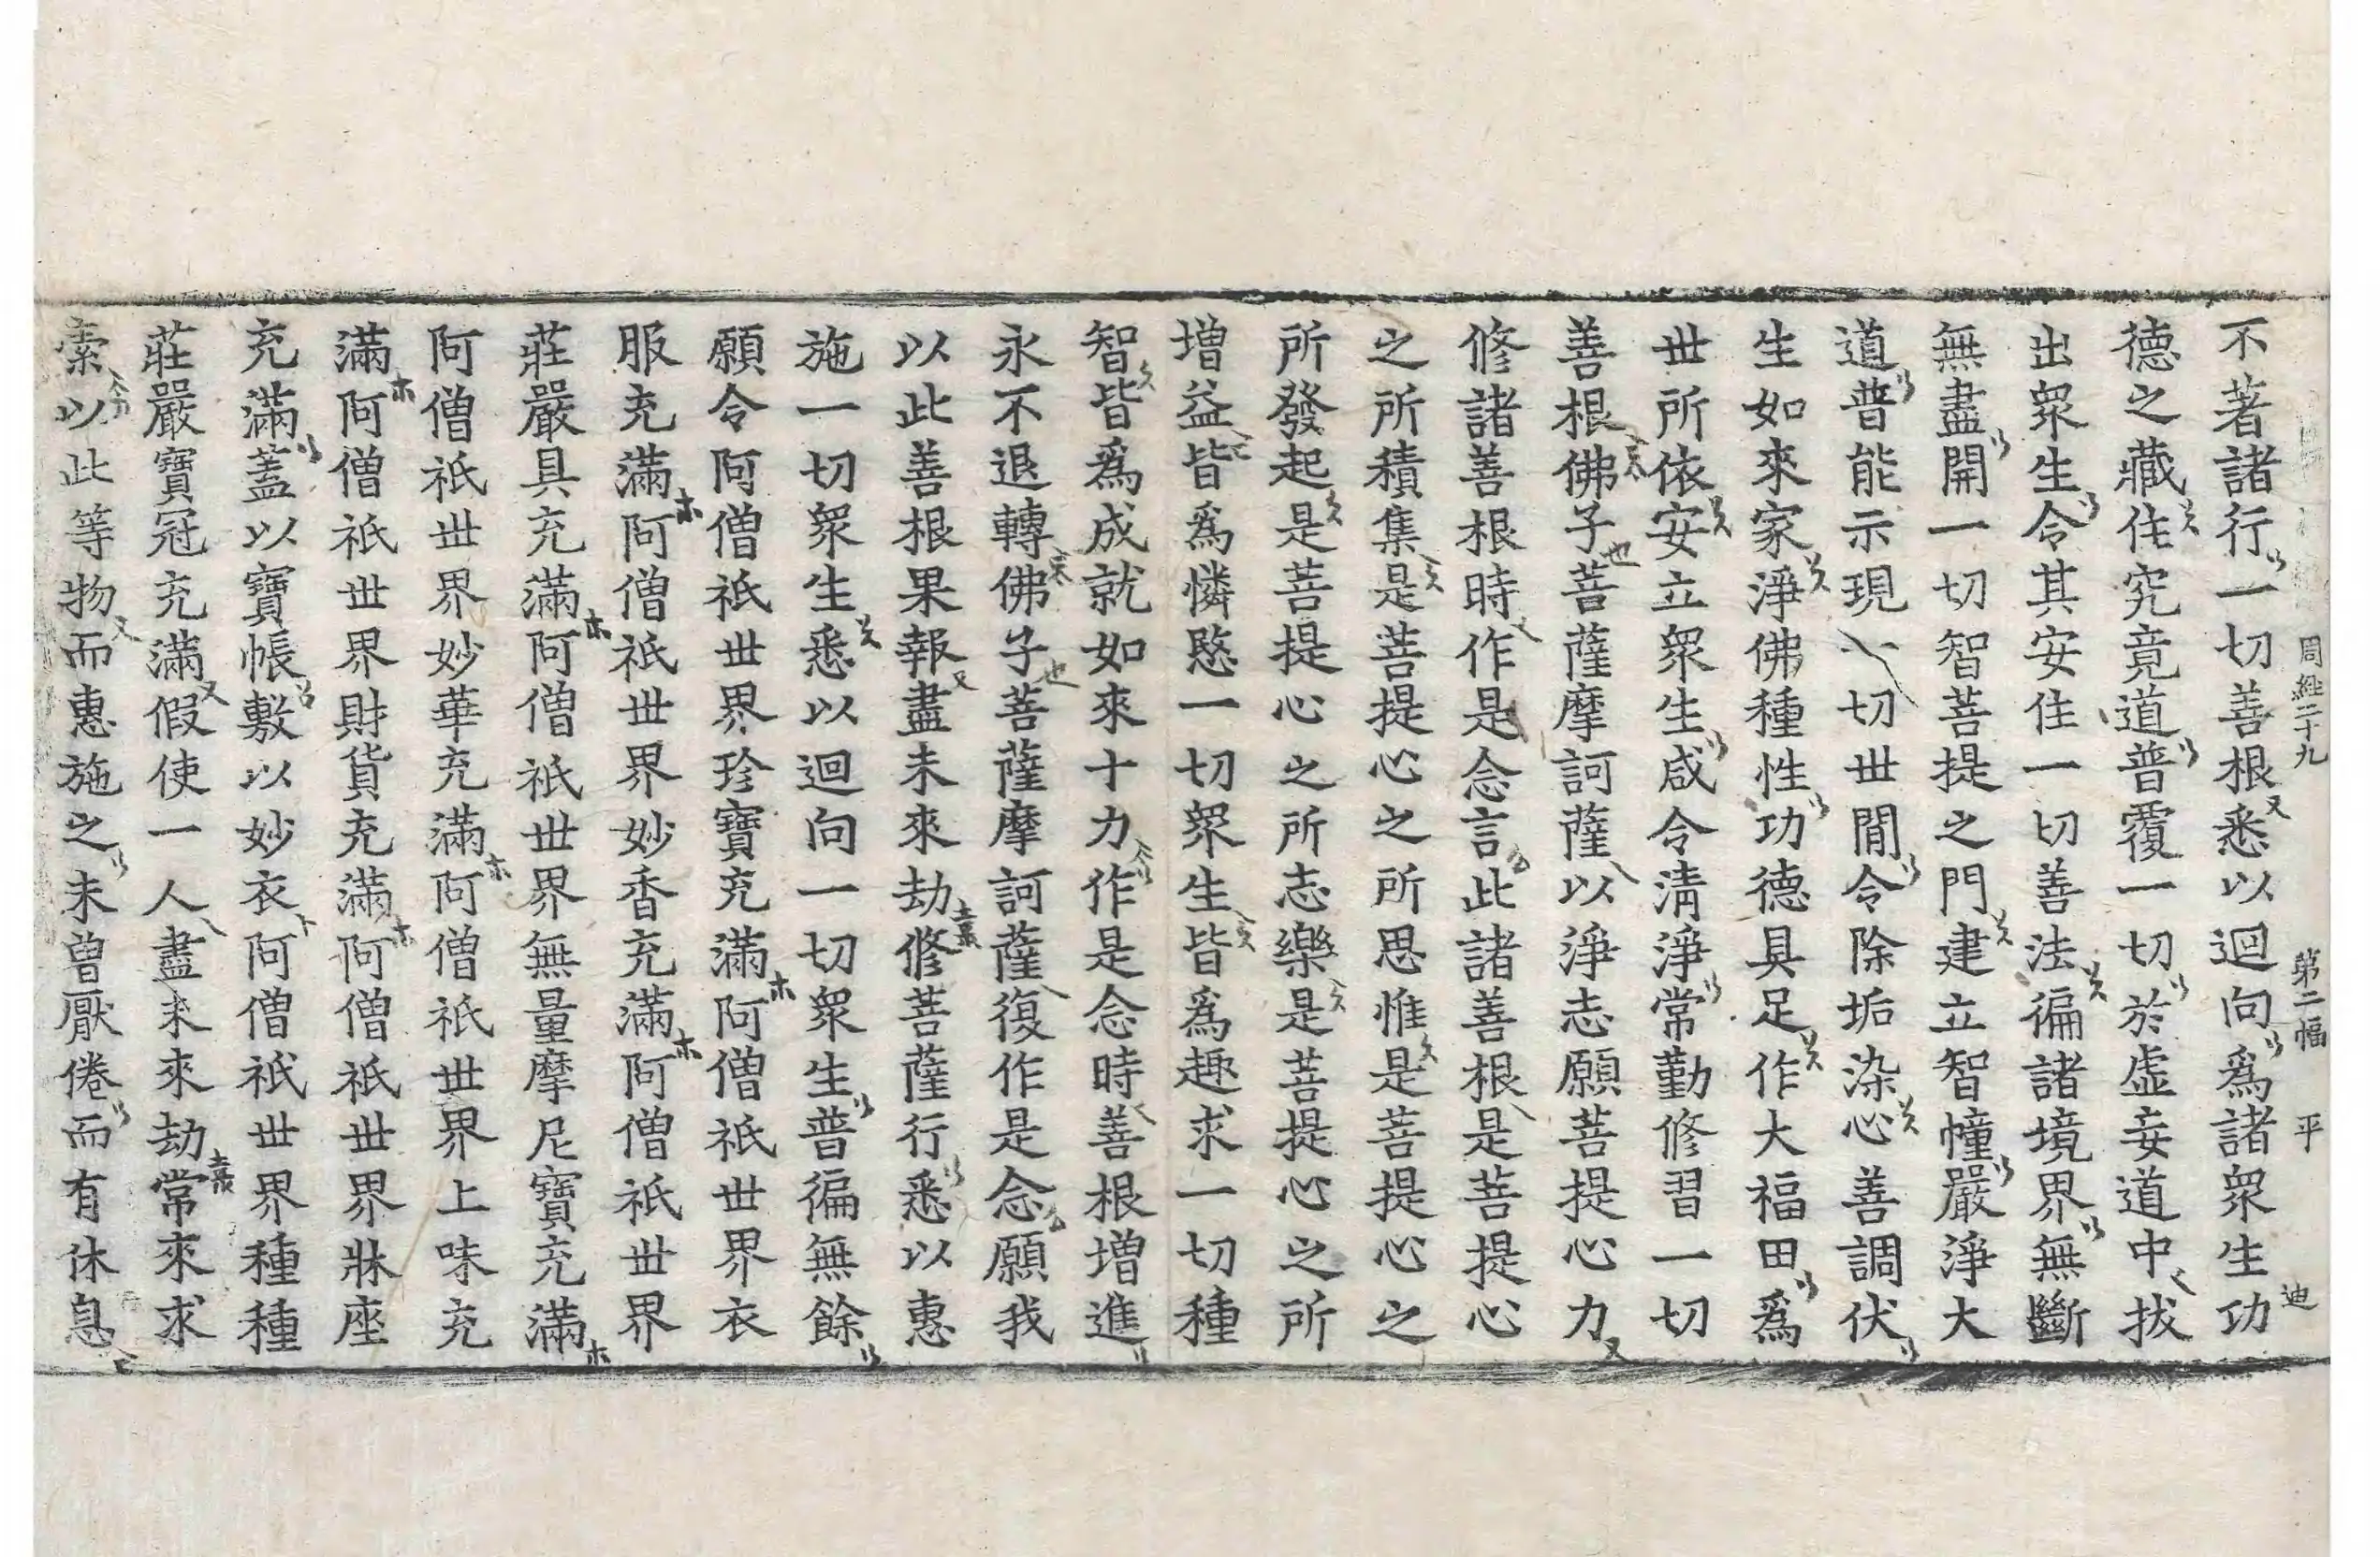 周經二十九 第二幅 平 迪
不著諸行一切善根悉以迴向爲諸衆生功
德之藏住究竟道普覆一切於虛妄道中拔
出衆生令其安住一切善法徧諸境界無斷
無盡開一切智菩提之門建立智幢嚴淨大
道普能示現一切世閒令除垢染心善調伏
生如來家淨佛種性功德具足作大福田爲
世所依安立衆生咸令清淨常勤修習一切
善根佛子菩薩摩訶薩以淨志願菩提心力
修諸善根時作是念言此諸善根是菩提心
之所積集是菩提心之所思惟是菩提心之
所發起是菩提心之所志樂是菩提心之所
增益皆爲憐愍一切衆生皆爲趣求一切種
智皆爲成就如來十力作是念時善根增進
永不退轉佛子菩薩摩訶薩復作是念願我
以此善根果報盡未來劫修菩薩行悉以惠
施一切衆生悉以迴向一切衆生普徧無餘
願令阿僧祇世界珍寶充滿阿僧祇世界衣
服充滿阿僧祇世界妙香充滿阿僧祇世界
莊嚴具充滿阿僧祇世界無量摩尼寶充滿
阿僧祇世界妙華充滿阿僧祇世界上味充
滿阿僧祇世界財貨充滿阿僧祇世界牀座
充滿蓋以寶帳敷以妙衣阿僧祇世界種種
莊嚴寶冠充滿假使一人盡未來劫常來求
索以此等物而惠施之未曾厭倦而有休息